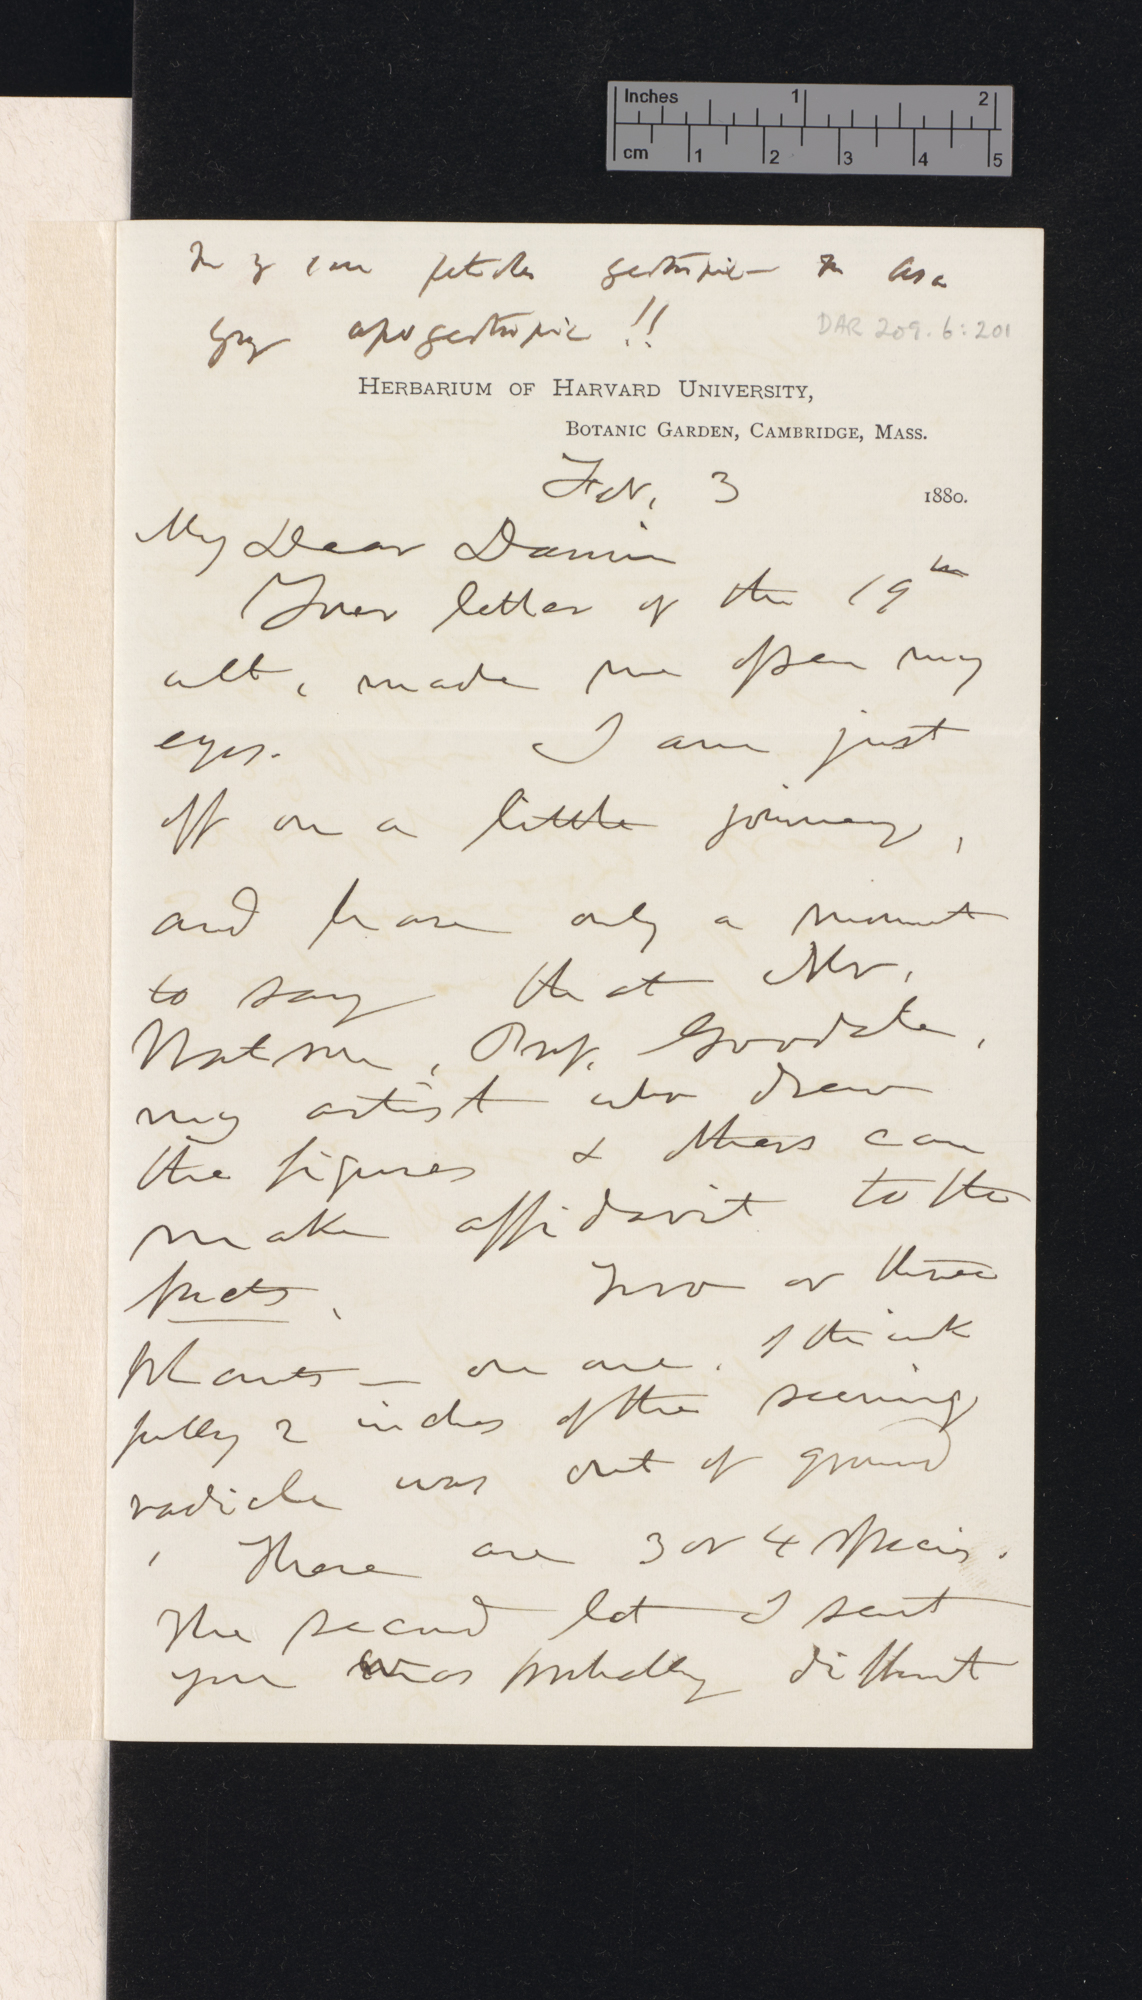 Inches 1 2
cm 1 2 3 4 5
petioles geotropic — Asa
Gray apogeotropic!!
DAR 209.6:201
HERBARIUM OF HARVARD UNIVERSITY,
BOTANIC GARDEN, CAMBRIDGE, MASS.
Feb. 3 1880.
My Dear Darwin
Your letter of the 19th
ult, made me open my
eyes. I am just
off on a little journey,
and have only a moment
to say that Mr.
Watson, Prof. Goodale,
my artist who drew
the figures & others can
make affidavit to the
facts. Two or three
plants — on one, I think
fully 2 inches of the seeming
radicle was out of ground
There are 3 or 4 species.
The second lot I sent
you was probably different